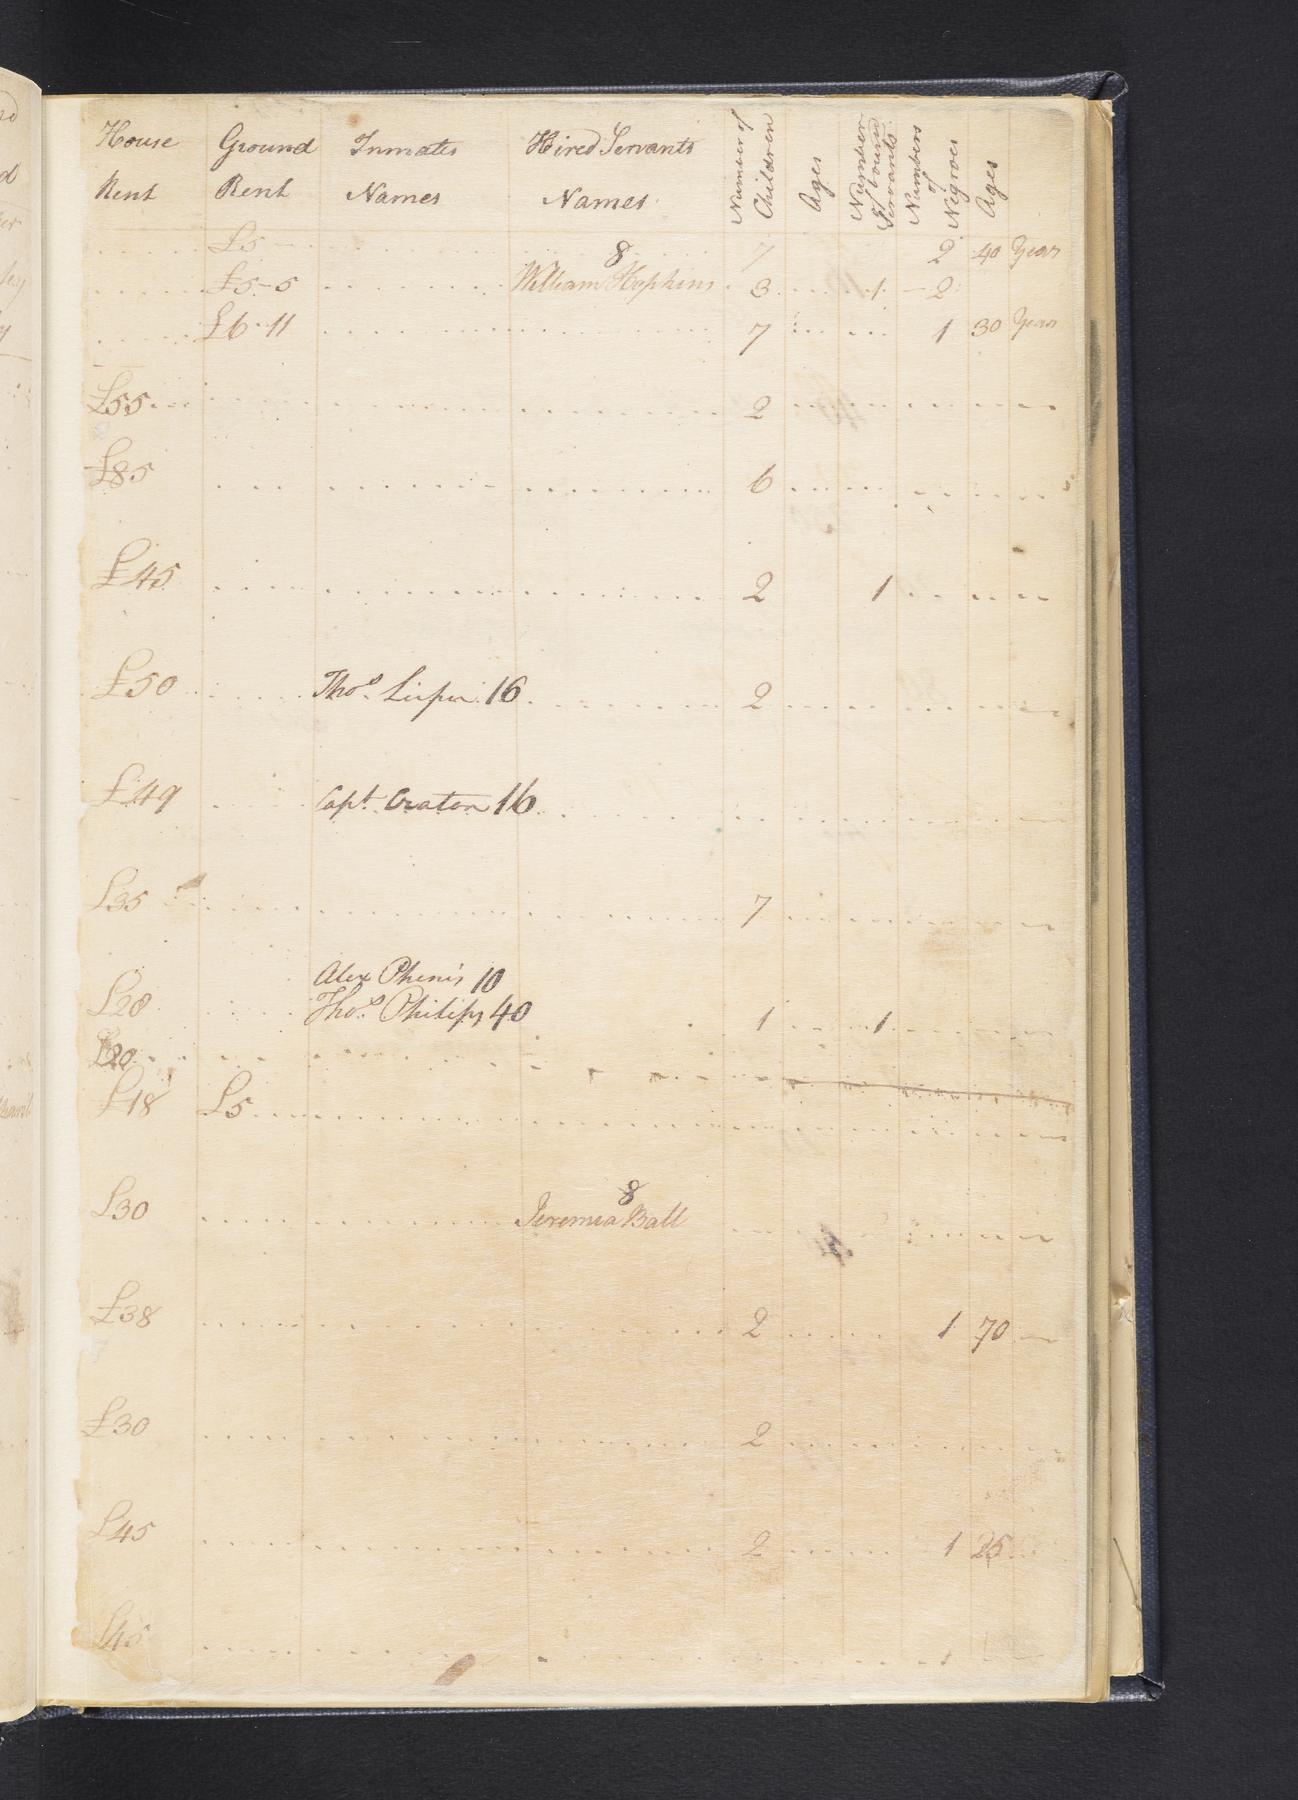 House Ground Inmates Hired Servants Number of Children Ages Number of bound Servants Numbers of Negroes Ages
Rent Rent Names Names
£5 7 2 40 Year
£5-5 8 William Hopkins 3 1 2
£6-11 7 1 30 Year
£55 2
£85 6
£45 2 1
£50 Thos. 16 2
£49 Capt. Craton 16
£35 7
Alex Phenis 10
£28 Thos. Philips 40 1 1
£20
£18 £5
8
£30 Jeremia Ball
£38 2 1 70
£30 2
£45 2 1 25
£45 1